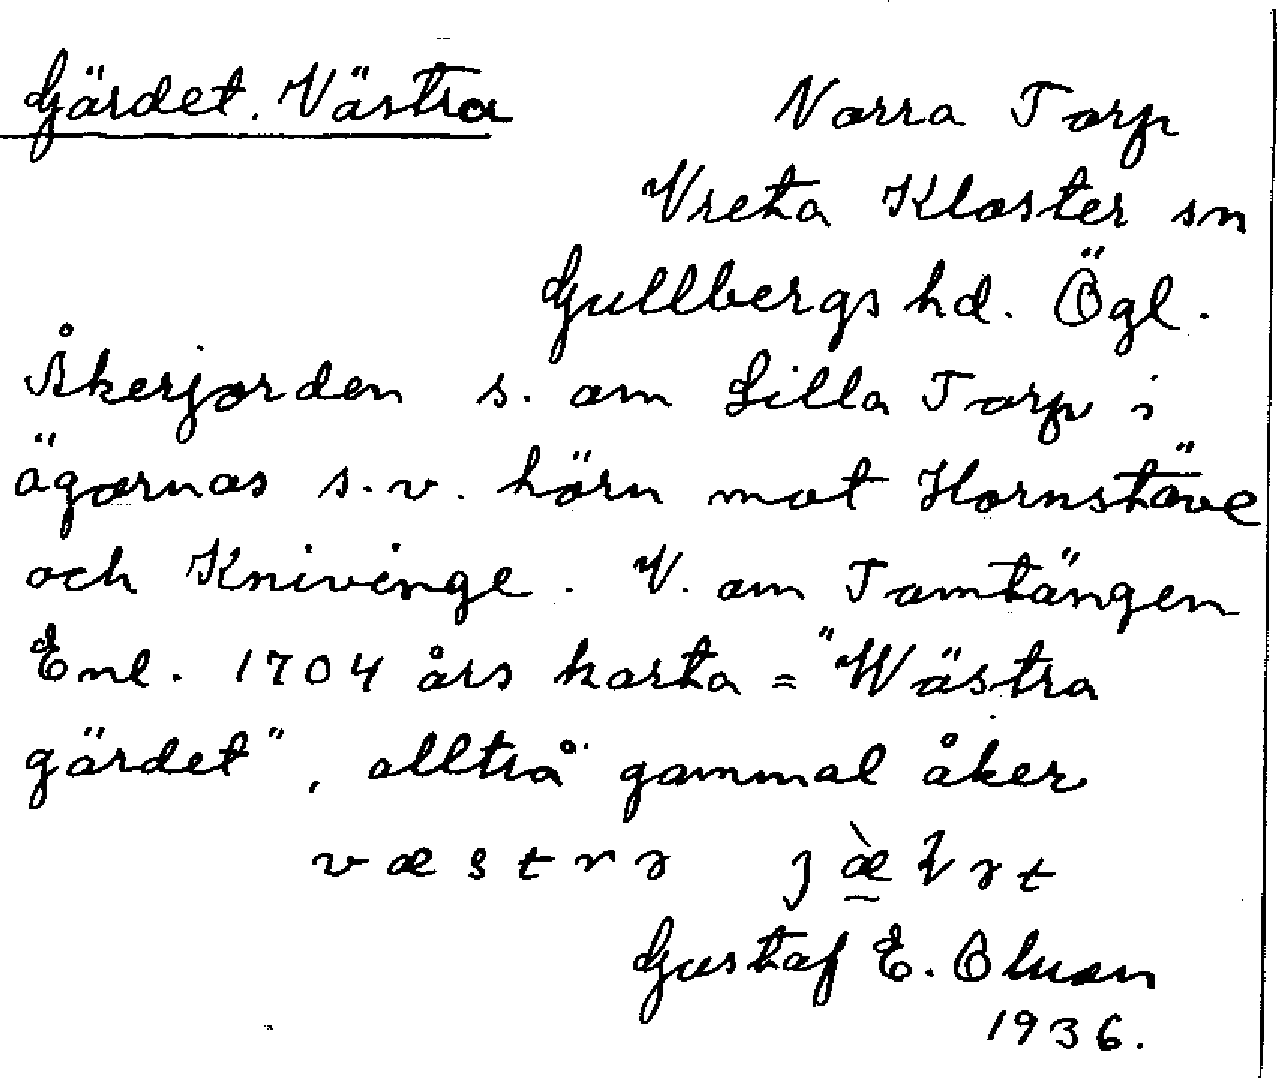 Gärdet. Västra
Norra Torp
Vreta Kloster sn
Gullbergs hd. Ögl.
Åkerjorden s. om Lilla Torp i
ägornas s.v. hörn mot Hornstäve
och Knivinge. V. om Tomtängen
Enl. 1704 års karta = "Wästra
gärdet", alltså gammal åker
Gustaf E. Olsson
1936.